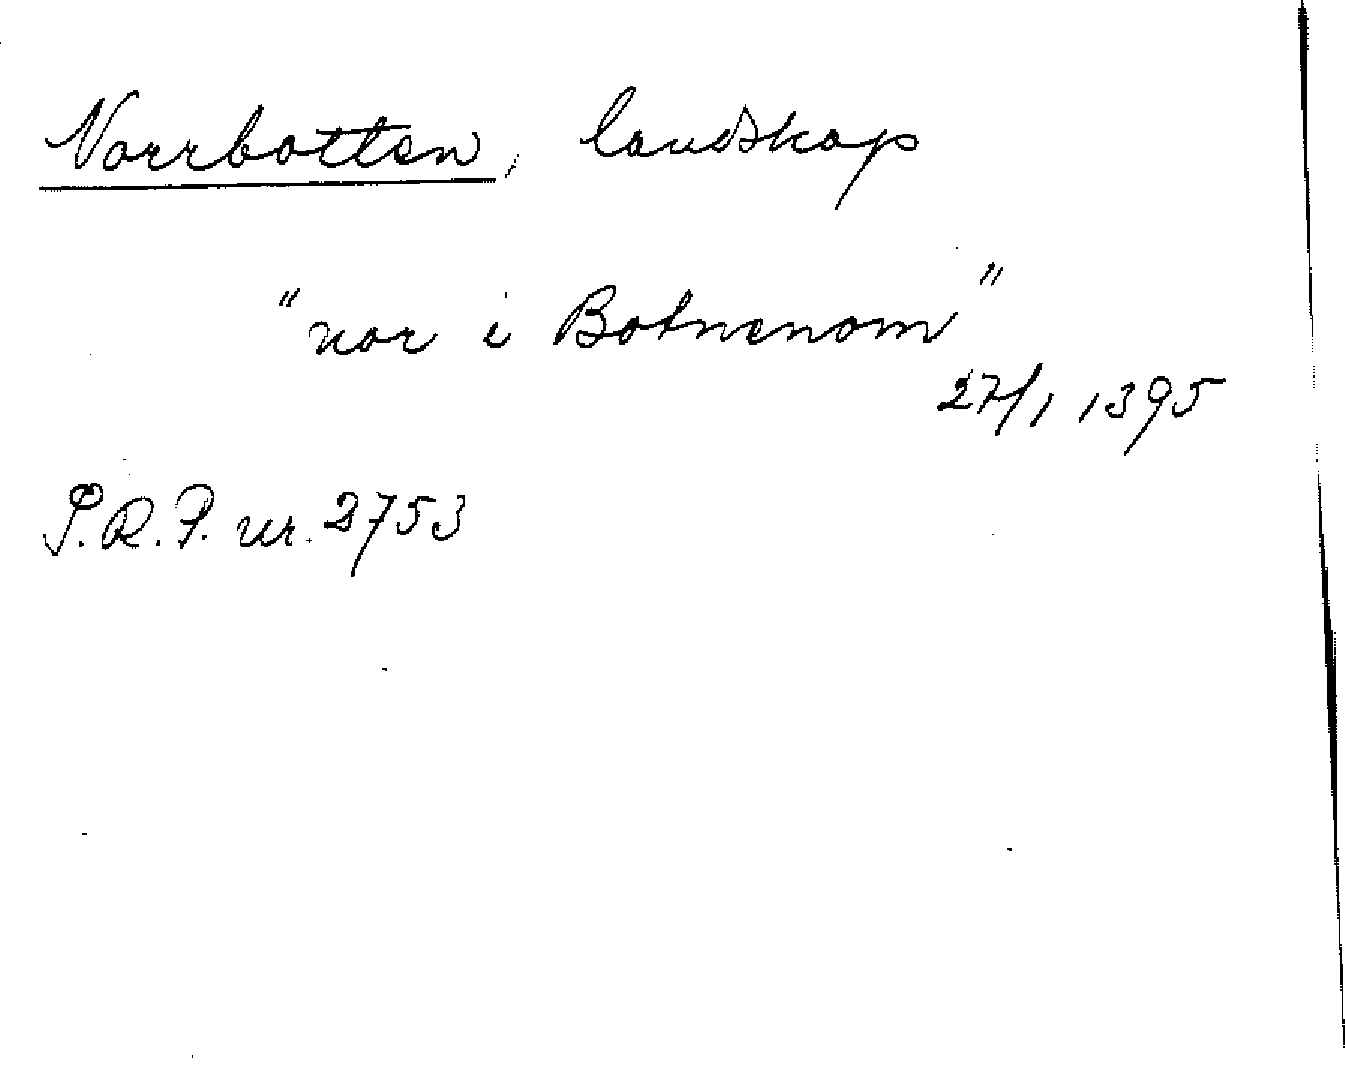 Norrbotten, landskap
"nor i Botnenom"
27/1 1395
S.R.P. nr. 2753